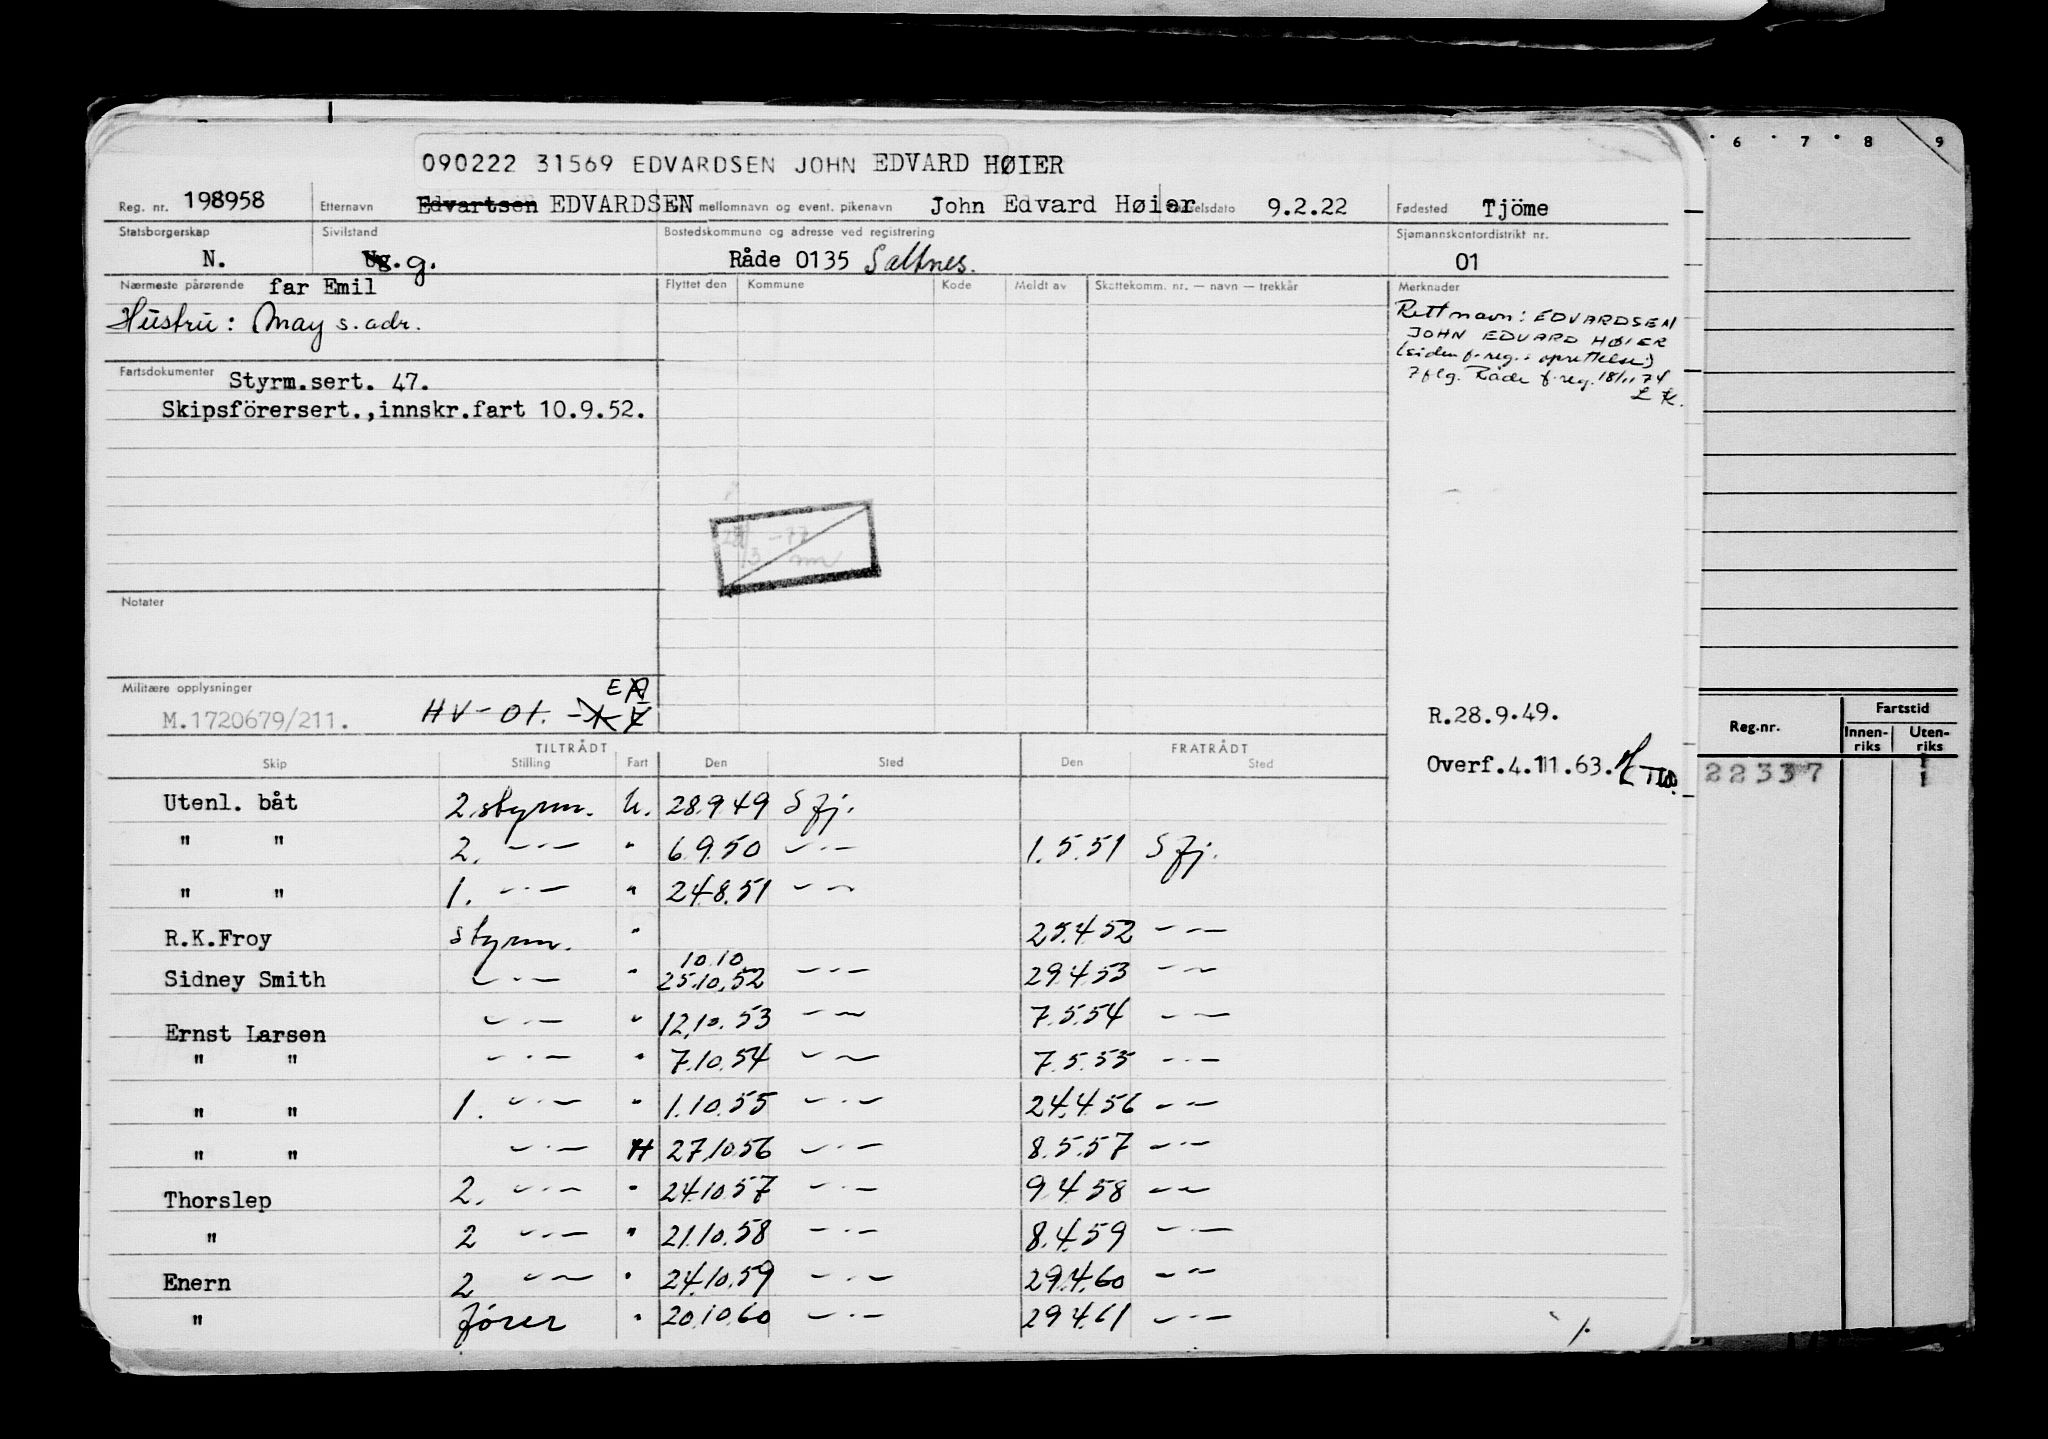 6 7 8 9
090222 31569 EDVARDSEN JOHN EDVARD HØIER
Reg. nr. 198958 Etternavn Edvartsen EDVARDSEN mellomnavn og event. pikenavn John Edvard Høier selsdato 9.2.22 Fødested Tjöme
Statsborgerskap N. Sivilstand Ug. g. Bostedskommune og adresse ved registrering Råde 0135 Saltnes. Sjømannskontordistrikt nr. 01
Nærmeste pårørende far Emil Flyttet den Kommune Kode Meldt av Skattekomm. nr. — navn — trekkår Merknader
Hustru: May s. adr.
Rett navn: EDVARDSEN
JOHN EDVARD HØIER
(siden f.reg.s oprettelse)
Iflg. Råde f.reg. 18/11 74
Fartsdokumenter Styrm.sert. 47.
Skipsförersert.,innskr.fart 10.9.52.
Notater
Militære opplysninger
M.1720679/211. HV-01. R.28.9.49.
Overf.4.11.63.
Reg.nr. Fartstid
Innen-riks Uten-riks
22337
TILTRÅDT FRATRÅDT
Skip Stilling Fart Den Sted Den Sted
Utenl. båt 2.styrm. U. 28.9.49 S fj.
" " 2. —·— " 6.9.50 —·— 1.5.51 S fj.
" " 1. —·— " 24.8.51 —·—
R.K.Froy styrm. " 25.4.52 —·—
10.10
Sidney Smith —·— " 25.10.52 —·— 29.4.53 —·—
Ernst Larsen —·— " 12.10.53 —·— 7.5.54 —·—
" " —·— " 7.10.54 —·— 7.5.55 —·—
" " 1. —·— " 1.10.55 —·— 24.4.56 —·—
" " —·— H 27.10.56 —·— 8.5.57 —·—
Thorslep 2. —·— " 24.10.57 —·— 9.4.58 —·—
" 2 —·— " 21.10.58 —·— 8.4.59 —·—
Enern 2 —·— " 24.10.59 —·— 29.4.60 —·—
" fører " 20.10.60 —·— 29.4.61 —·—